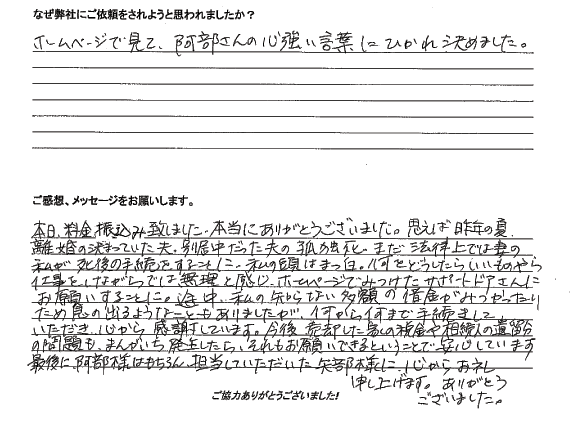 なぜ弊社にご依頼をされようと思われましたか？
ホームページで見て、阿部さんの心強い言葉にひかれ決めました。
ご感想、メッセージをお願いします。
本日、料金振込み致しました。本当にありがとうございました。思えば昨年の夏、
離婚の決まっていた夫、別居中だった夫の孤独死、まだ法律上では妻の
私が死後の手続をすることに、私の頭はまっ白。何をどうしたらいいものやら
仕事をしながらでは無理と感じ、ホームページでみつけたサポートドアさんに
お願いすることに。途中、私の知らない多額の借金がみつかったり
ため息の出るようなこともありましたが、何から何まで手続きして
いただき、心から感謝しています。今後売却した家の税金や相続人の遺留分
の問題も、まんがいち発生したら、それもお願いできるということで安心しています
最後に阿部様はもちろん、担当していただいた矢部様に、心からお礼
申し上げます。ありがとう
ございました。
ご協力ありがとうございました!